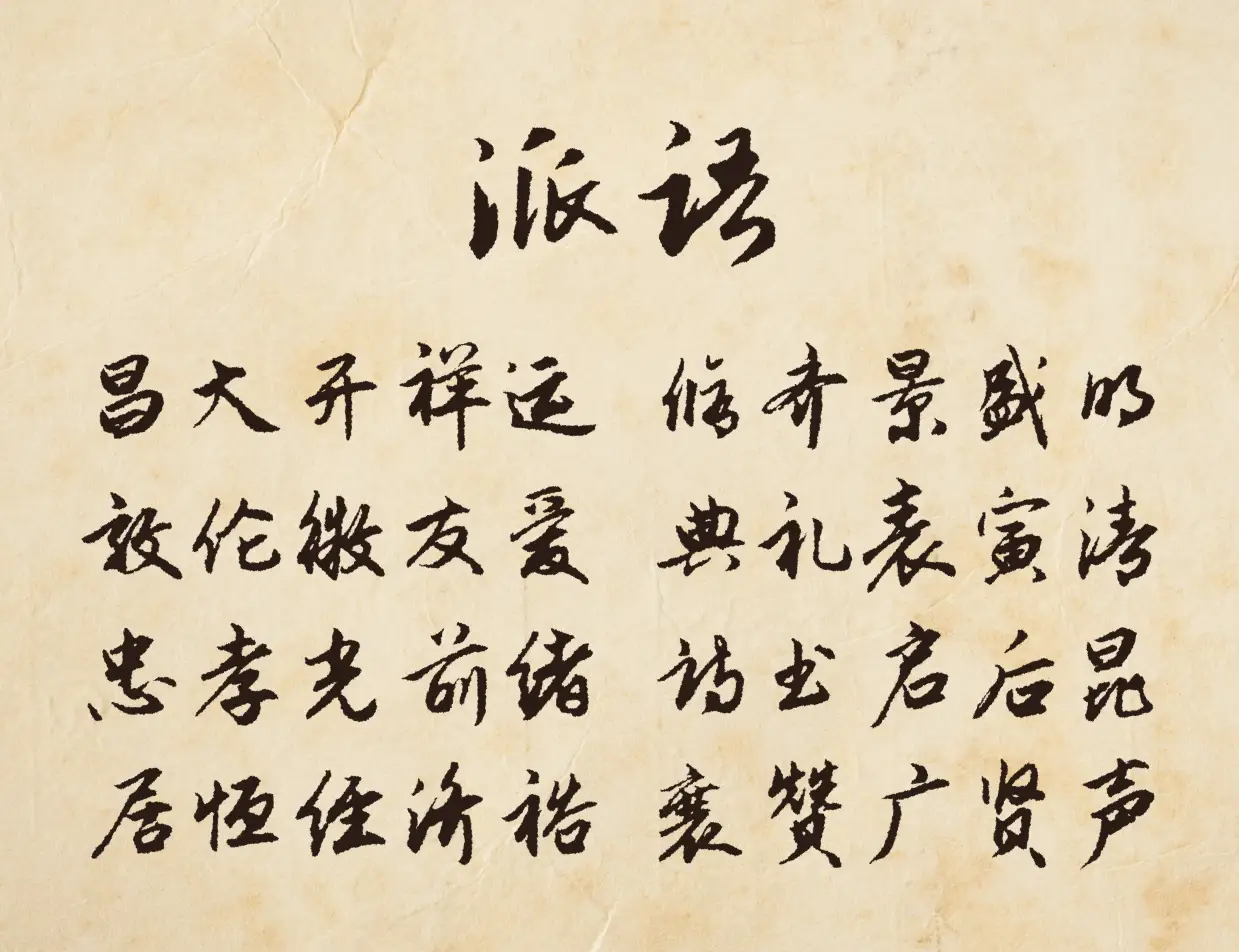 派语
昌大开祥运 修齐景盛明
敦伦徽友爱 典礼表寅清
忠孝光前绪 诗书启后昆
居恒经济裕 襄赞广贤声